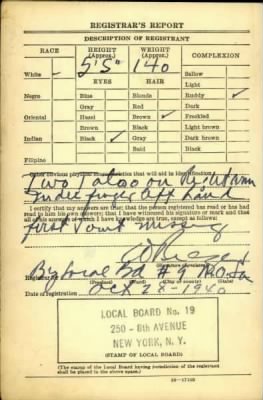 REGISTRAR'S REPORT
DESCRIPTION OF REGISTRANT
RACE HEIGHT (Approx.) WEIGHT (Approx.) COMPLEXION
White 5'5" 140 Sallow
EYES HAIR Light
Negro Blue Blonde Ruddy ✓
Gray Red Dark
Oriental Hazel Brown Freckled
Brown Black Light brown
Indian Black Gray Dark brown
Bald Black
Filipino
Other obvious physical characteristics that will aid in identification
Two on
index left hand
I certify that my answers are true; that the person registered has read or has had
read to him his own answers; that I have witnessed his signature or mark and that
all of his answers of which I have knowledge are true, except as follows:
first joint missing
(Signature of registrar)
Registrar for Local Bd # 9
(Precinct) (Ward) (City or county) (State)
Date of registration Oct 28-1940
LOCAL BOARD No. 19
250 - 8th AVENUE
NEW YORK, N. Y.
(STAMP OF LOCAL BOARD)
(The stamp of the Local Board having jurisdiction of the registrant
shall be placed in the above space.)